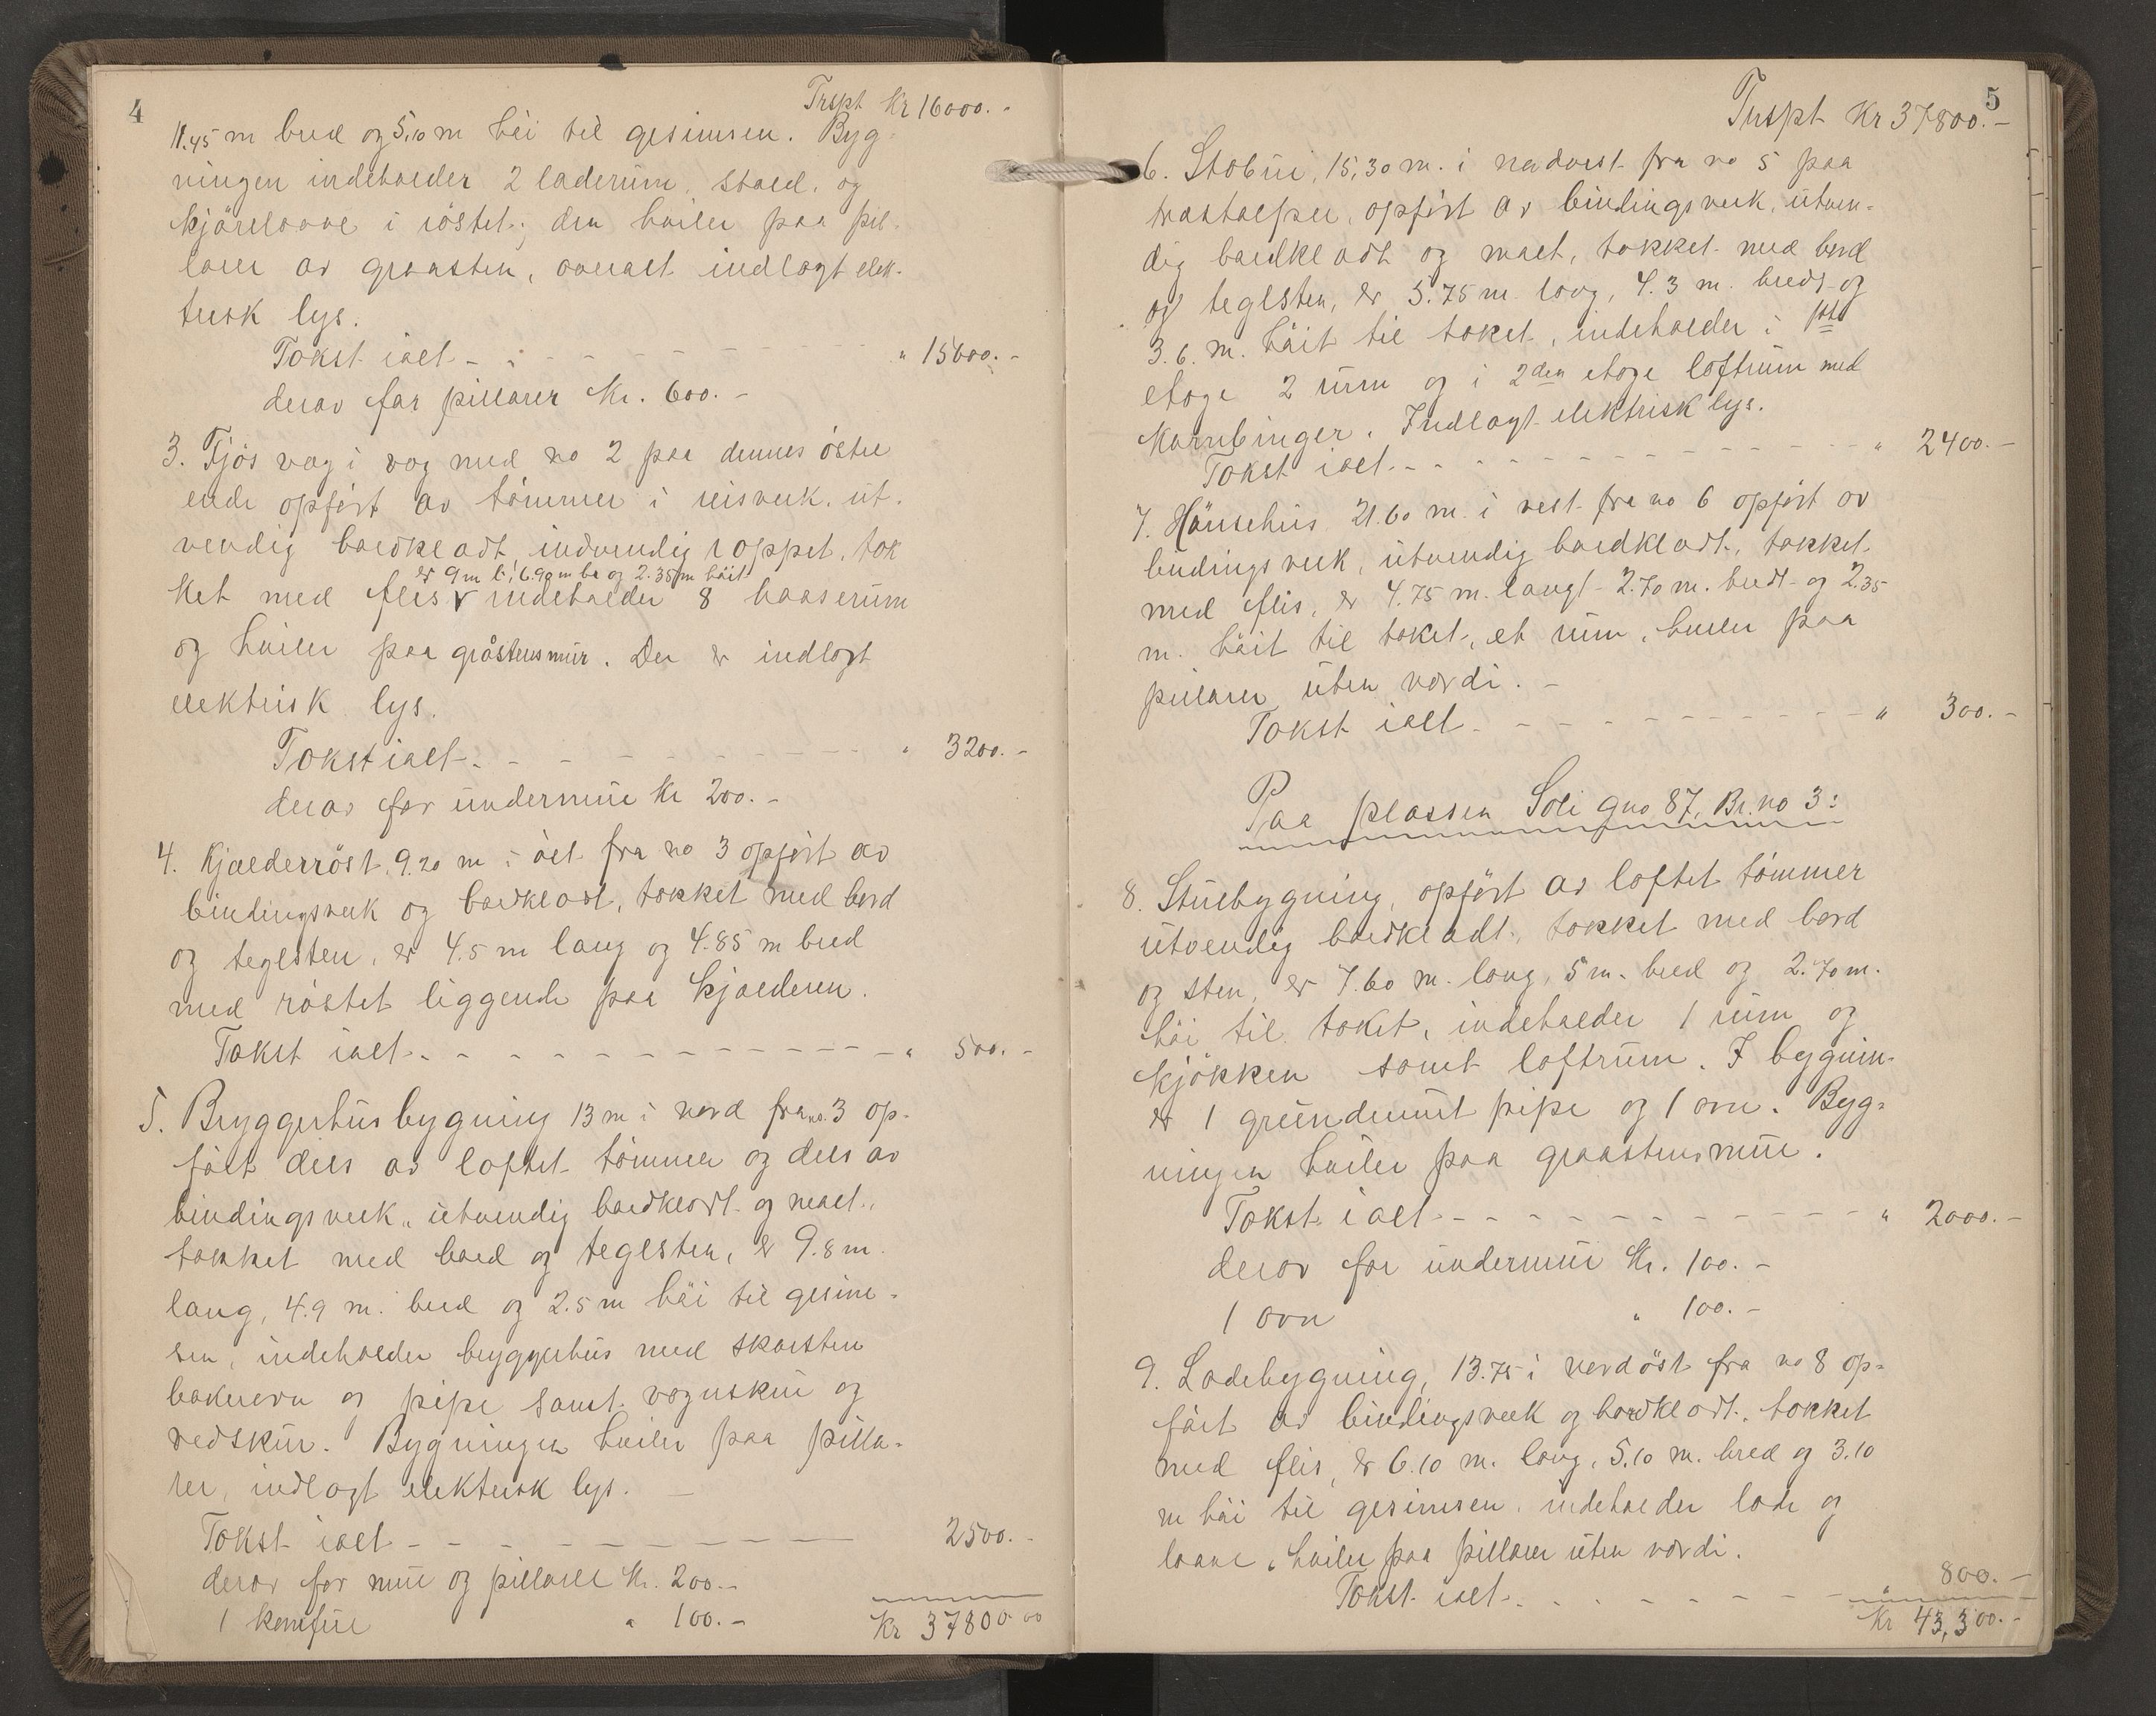 4
Trspt Kr 16000.-
11.45 m bred og 5.10 m höi til gesimsen. Byg-
ningen indeholder 2 laderüm, stald, og
kjörelaave i röstet; den hviler paa pil-
larer av graasten, overalt indlagt elek-
trisk lys.
Takst ialt - - - - - " 15600.-
derav for pillarer Kr. 600.-
3. Fjös væg i væg med no 2 paa dennes östre
ende opfört av tömmer i reisverk, üt-
vendig bordklædt, indvendig rappet, tæk
er 9 m l, 6.90 m br og 2.35 m höit
ket med flis indeholder 8 baaserüm
og hviler paa gråstensmür. Der er indlagt
elektrisk lys.
Takst ialt - - - - - " 3200.-
derav for ündermür Kr 200.-
4. Kjælderröst, 9.20 m i öst fra no 3 opfört av
bindingsverk og bordklædt, tækket med bord
og teglsten, er 4.5 m lang og 4.85 m bred
med röstet liggende paa kjælderen.
Takst ialt - - - - - " 500.-
5. Bryggerhüsbygning 13 m i nord fra no. 3 op-
fört dels av laftet tömmer og dels av
bindingsverk, ütvendig bordklædt og malt,
tækket med bord og teglsten, er 9.8 m.
lang, 4.9 m. bred og 2.5 m höi til gesim-
sen, indeholder bryggerhüs med skorsten
bakerovn og pipe samt vognskür og
vedskür. Bygningen hviler paa pilla-
rer, indlagt elektrisk lys. -
Takst ialt - - - - - 2500.-
derav for mür og pillarer Kr. 200.-
1 komfür " 100.-
Kr 37800.00
5
Trspt Kr 37800.-
6. Stabür, 15,30 m. i nordvest fra no 5 paa
træstolper, opfört av bindingsverk, ütven-
dig bordklædt og malt, tækket med bord
og teglsten, er 5.75 m lang, 4.3 m. bredt og
3.6. m. höit til taket, indeholder i 1ste
etage 2 rüm og i 2den etage loftrüm med
kornbinger. Indlagt elektrisk lys.
Takst ialt - - - - - " 2400.-
7. Hönsehüs 21.60 m. i vest fra no 6 opfört av
bindingsverk, ütvendig bordklædt, tækket
med flis, er 4.75 m. langt 2.70 m. bredt og 2.35
m. höit til taket, et rüm, hviler paa
pillarer üten værdi. -
Takst ialt - - - - - " 300.-
Paa plassen Soli gno 87, Br. no 3:
8. Stüebygning, opfört av laftet tömmer
ütvendig bordklædt, tækket med bord
og sten, er 7.60 m. lang, 5 m. bred og 2.70 m.
höi til taket, indeholder 1 rüm og
kjökken samt loftrüm. I bygnin-
er 1 gründmürt pipe og 1 ovn. Byg-
ningen hviler paa graastensmür.
Takst ialt - - - - - " 2000.-
derav for ündermür Kr. 100.-
1 ovn " 100.-
9. Ladebygning, 13.75 i nordöst fra no 8 op-
fört av bindingsverk og bordklædt, tækket
med flis, er 6.10 m. lang, 5.10 m. bred og 3.10
m höi til gesimsen, indeholder lade og
laave, hviler paa pillarer üten værdi.
Takst ialt - - - - - " 800.-
Kr 43,300.-